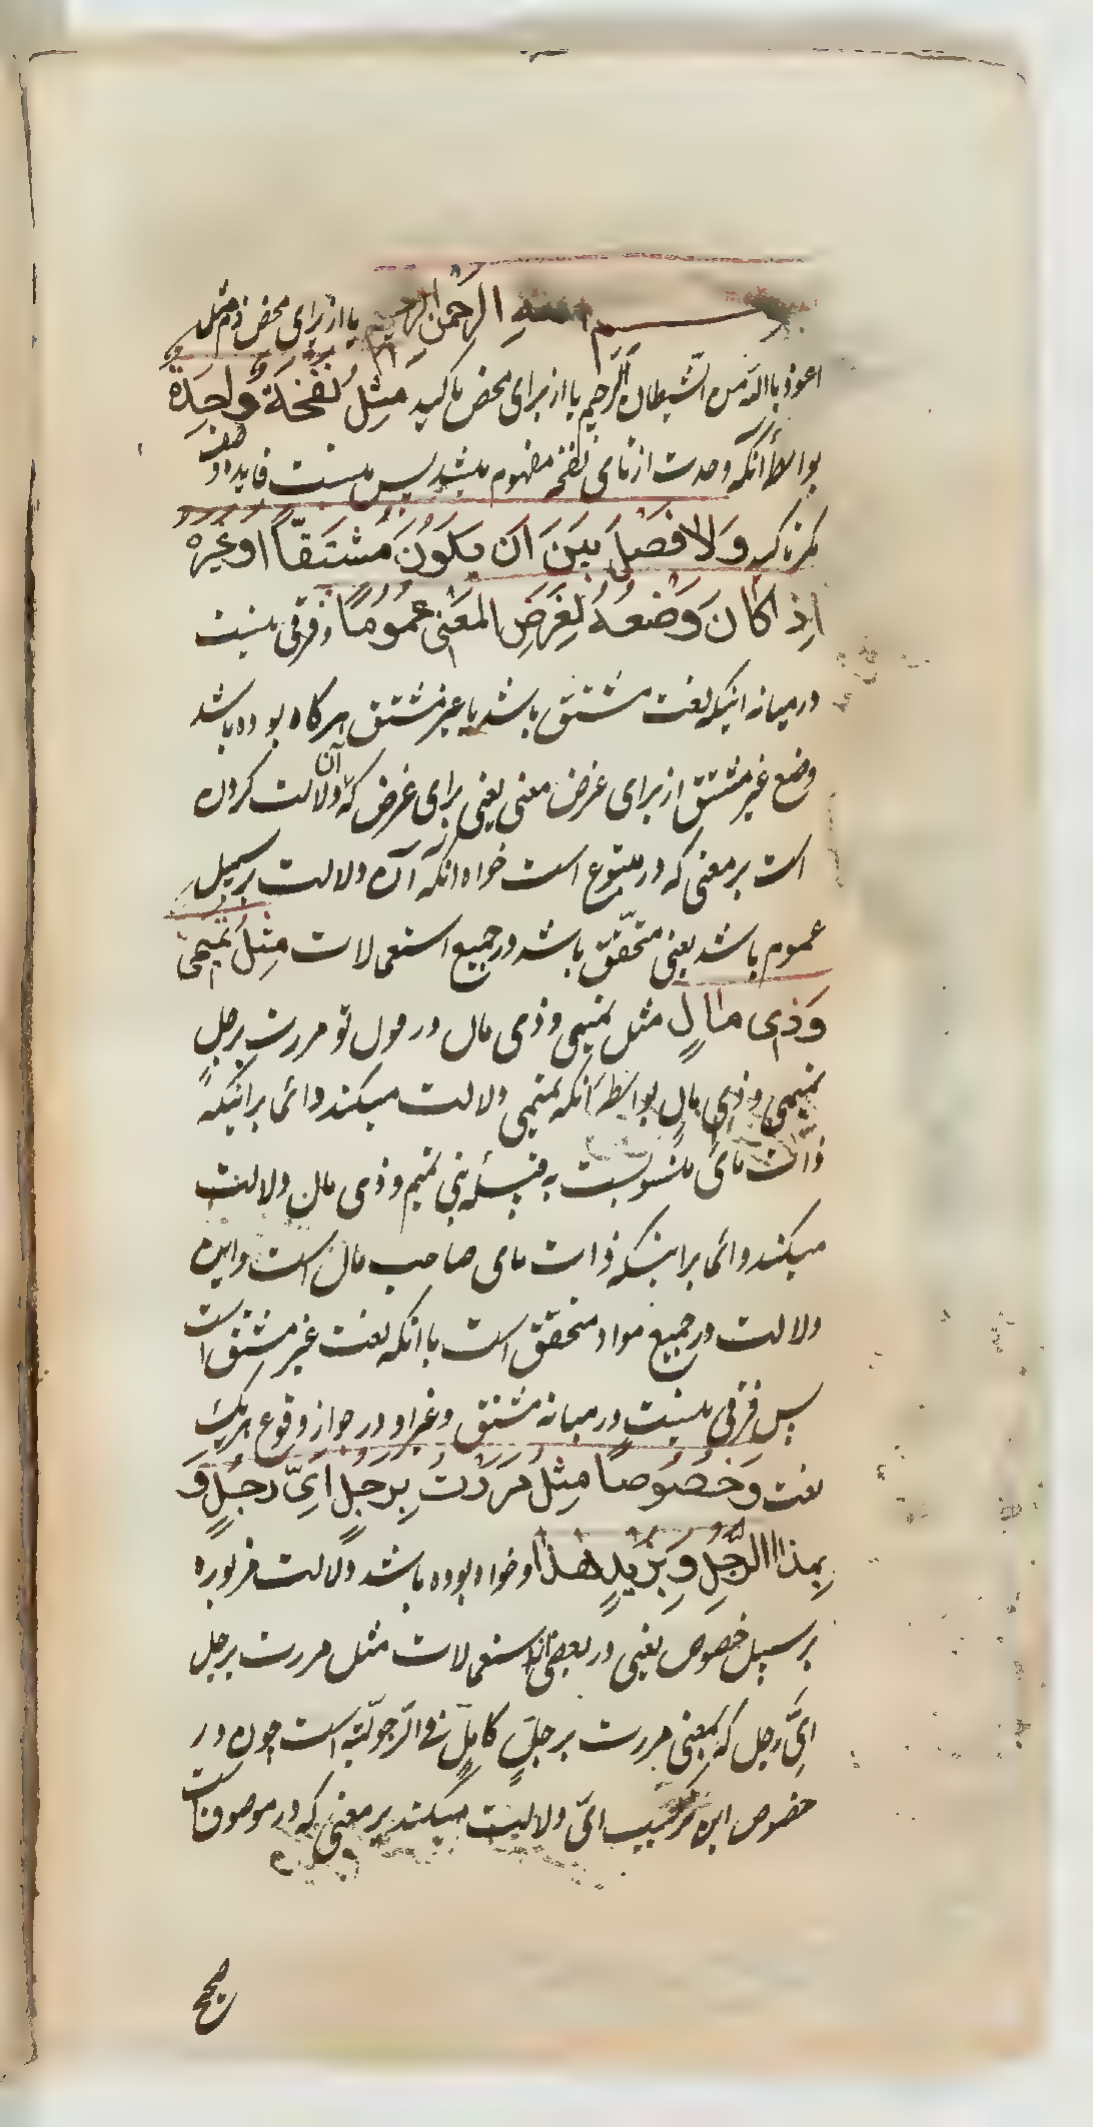 بسم الله الرحمن الرحیم یا از برای محض ذم مثل
اعوذ بالله من الشیطان الرجیم یا از برای محض تاکید مثل نفخة واحدة
بواسطۀ آنکه وحدت از تای نفخه مفهوم میشد پس نیست فایده در وصف
مکر تاکید ولا فصل بین ان یکون مشتقا او غیره
اذا کان وضعه لغرض المعنی عموما و فرقی نیست
در میانه اینکه نعت مشتق باشد یا غیر مشتق هر کاه بوده باشد
وضع غیر مشتق از برای غرض معنی یعنی برای غرض که آن دلالت کردن
است بر معنی که در متبوع است خواه انکه آن دلالت بر سبیل
عموم باشد یعنی متحقق باشد در جمیع استعمالات مثل تمیمی
وذی مال مثل تمیمی و ذی مال در قول تو مررت برجل
تمیمی و ذی مال بواسطه آنکه تمیمی دلالت میکند دائما بر اینکه
ذات مائی منسوبست به قبیله بنی تمیم و ذی مال دلالت
میکند دائما بر اینکه ذات مای صاحب مال است و این
دلالت در جمیع مواد متحقق است با انکه نعت غیر مشتق است
پس فرقی نیست در میانه مشتق و غیر او در جواز وقوع هر یک
نعت وخصوصا مثل مررت برجل ای رجل و
بهذا الرجل وبزید هذا و خواه بوده باشد دلالت مزبوره
بر سبیل خصوص یعنی در بعضی از استعمالات مثل مررت برجل
ای رجل که بمعنی مررت برجل کامل فی الرجولیّة است چون در
خصوص این ترکیب ای دلالت میکند بر معنی که در موصوفست
صحیح